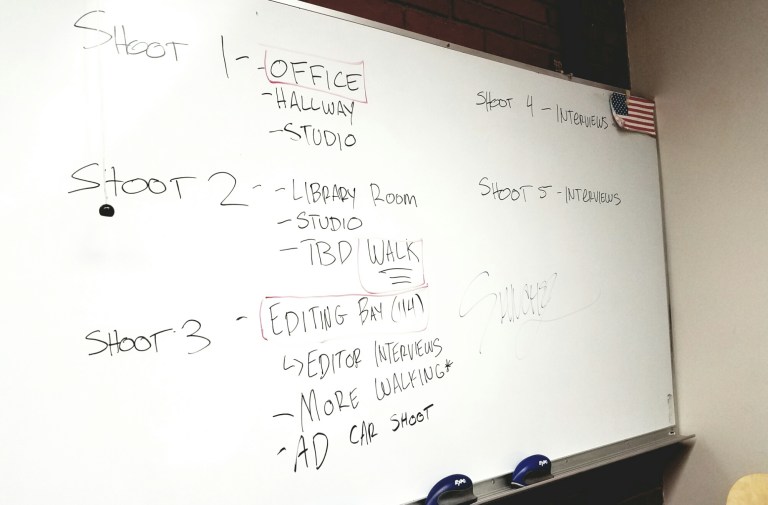 SHOOT 1 - - OFFICE
- HALLWAY
- STUDIO
SHOOT 2 - - LIBRARY ROOM
- STUDIO
- TBD WALK
SHOOT 3 - EDITING BAY (114)
↳ EDITOR INTERVIEWS
- MORE WALKING*
- AD CAR SHOOT
SHOOT 4 - INTERVIEWS
SHOOT 5 - INTERVIEWS
EXPO
EXPO